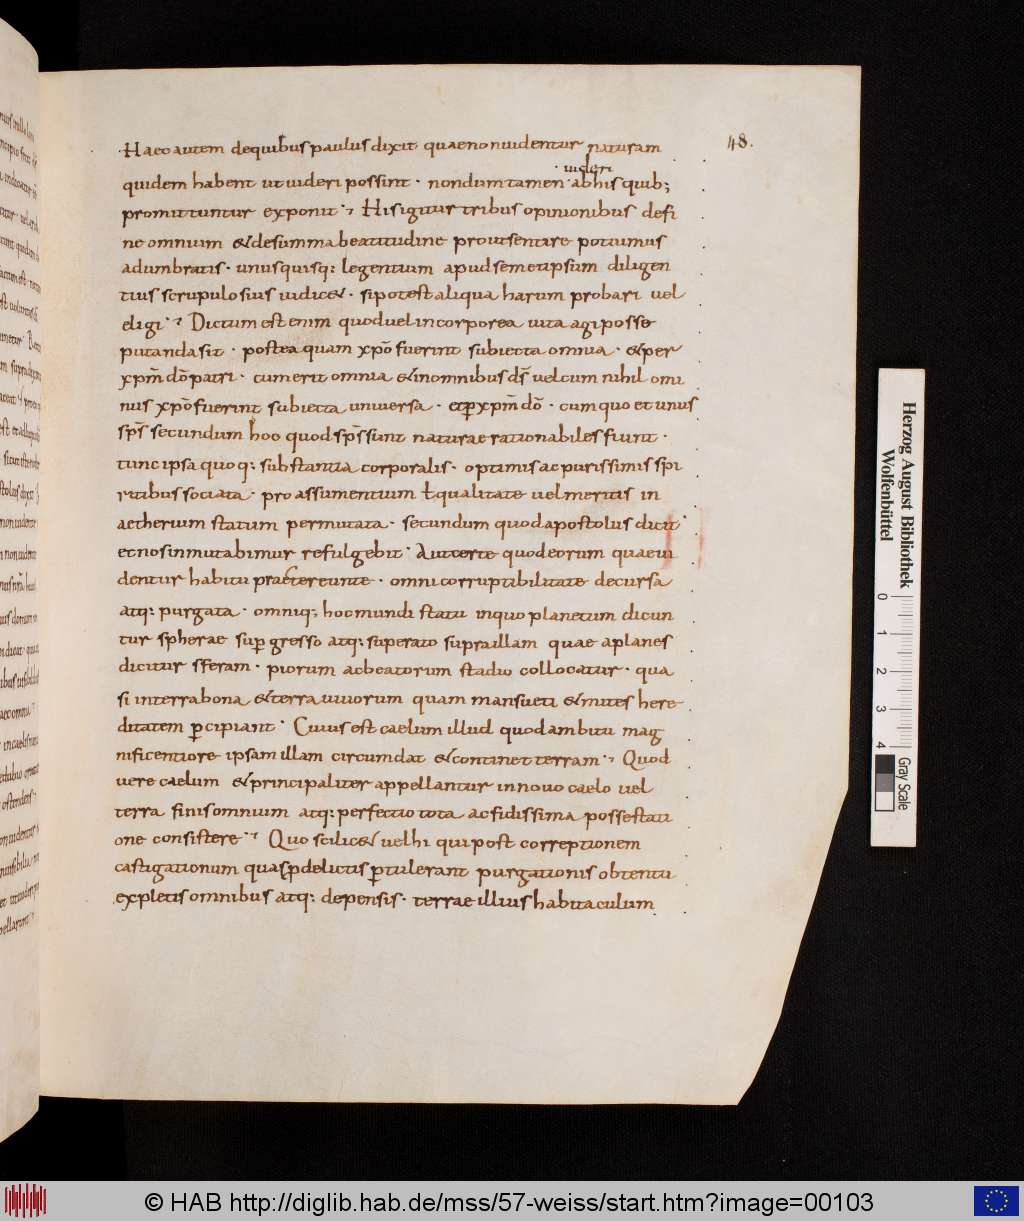 48.
Haec autem dequibus paulus dixit quae non uidentur naturam
uideri
quidem habent ut uideri possint · nondum tamen abhis quib;
promittuntur exponit · Hisigitur tribus opinionibus defi
ne omnium &desumma beatitudine prout sentire potuimus
adumbratis · unusquisq: legentium apud semetipsum diligen
tius scrupulosius iudic& · sipotest aliqua harum probari uel
eligi · Dictum est enim quod uel incorporea uita agi posse
putanda sit · postea quam xpo fuerint subiecta omnia · &per
xpm do patri · cum erit omnia &inomnibus ds uel cum nihil omi
nus xpo fuerint subiecta uniuersa · et p xpm do · cum quo et unus
sps secundum hoc quod sps sunt naturae rationabiles fiunt ·
tunc ipsa quoq: substantia corporalis · optimis ac purissimis spi
ritibus sociata · pro assumentium ł qualitate uel meritis in
aetherium statum permutata · secundum quod apostolus dicit ·
et nos inmutabimur refulgebit · Aut certe quod eorum quae ui
dentur habitu praetereunte · omni corruptibilitate decursa
atq: purgata · omniq: hoc mundi statu inquo planetum dicun
tur spherae supgresso atq: superato supra illam quae aplanes
dicitur sferam · piorum ac beatorum stadio collocatur · qua
si interra bona &terra uiuorum quam mansueti &mites here
ditatem pcipiant · Cuius est caelum illud quod ambitu mag
nificentiore ipsam illam circumdat &continet terram · Quod
uere caelum &principaliter appellantur innouo caelo uel
terra finis omnium atq: perfectio tota ac fidissima possestati
one consistere · Quo scilic& uel hi qui post correptionem
castigationum quas p delictis ptulerant purgationis obtentu
expletis omnibus atq: depensis · terrae illius habitaculum
Herzog August Bibliothek
Wolfenbüttel
0 1 2 3 4 Gray Scale
© HAB http://diglib.hab.de/mss/57-weiss/start.htm?image=00103